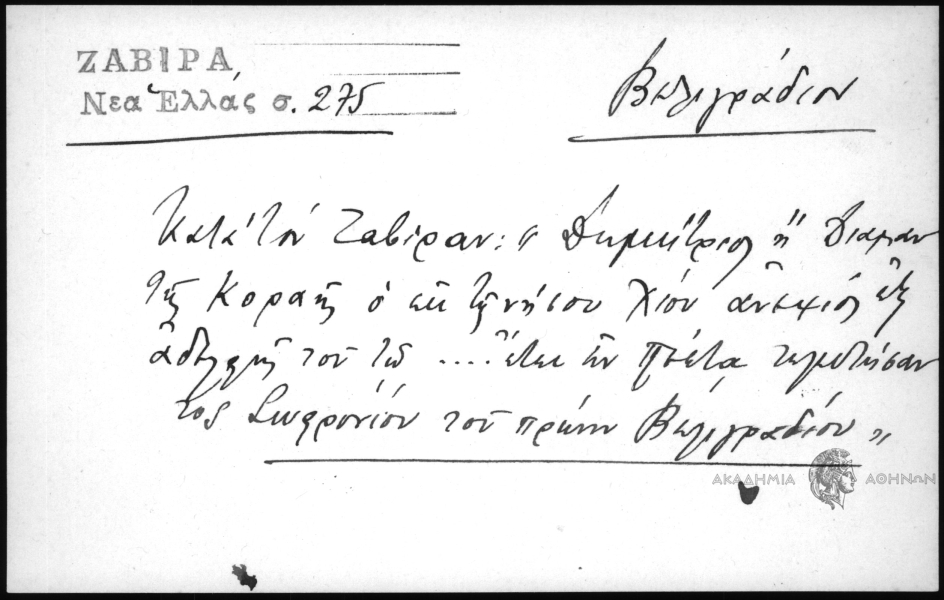 ΖΑΒΙΡΑ
Νεα Ἑλλάς σ. 275
Βελιγράδιον
Κατὰ τὸν Ζαβίραν: " Δημήτριος ἢ Διαμαν
τῆς Κοραῆς ὁ ἐκ τῆς νήσου Χίου ἀνεψιὸς ἐξ
ἀδελφῆς τοῦ .... ἔτει ἦν τελευτήσαν
τος Σωφρονίου τοῦ πρώην Βελιγραδίου "
ΑΚΑΔΗΜΙΑ ΑΘΗΝΩΝ